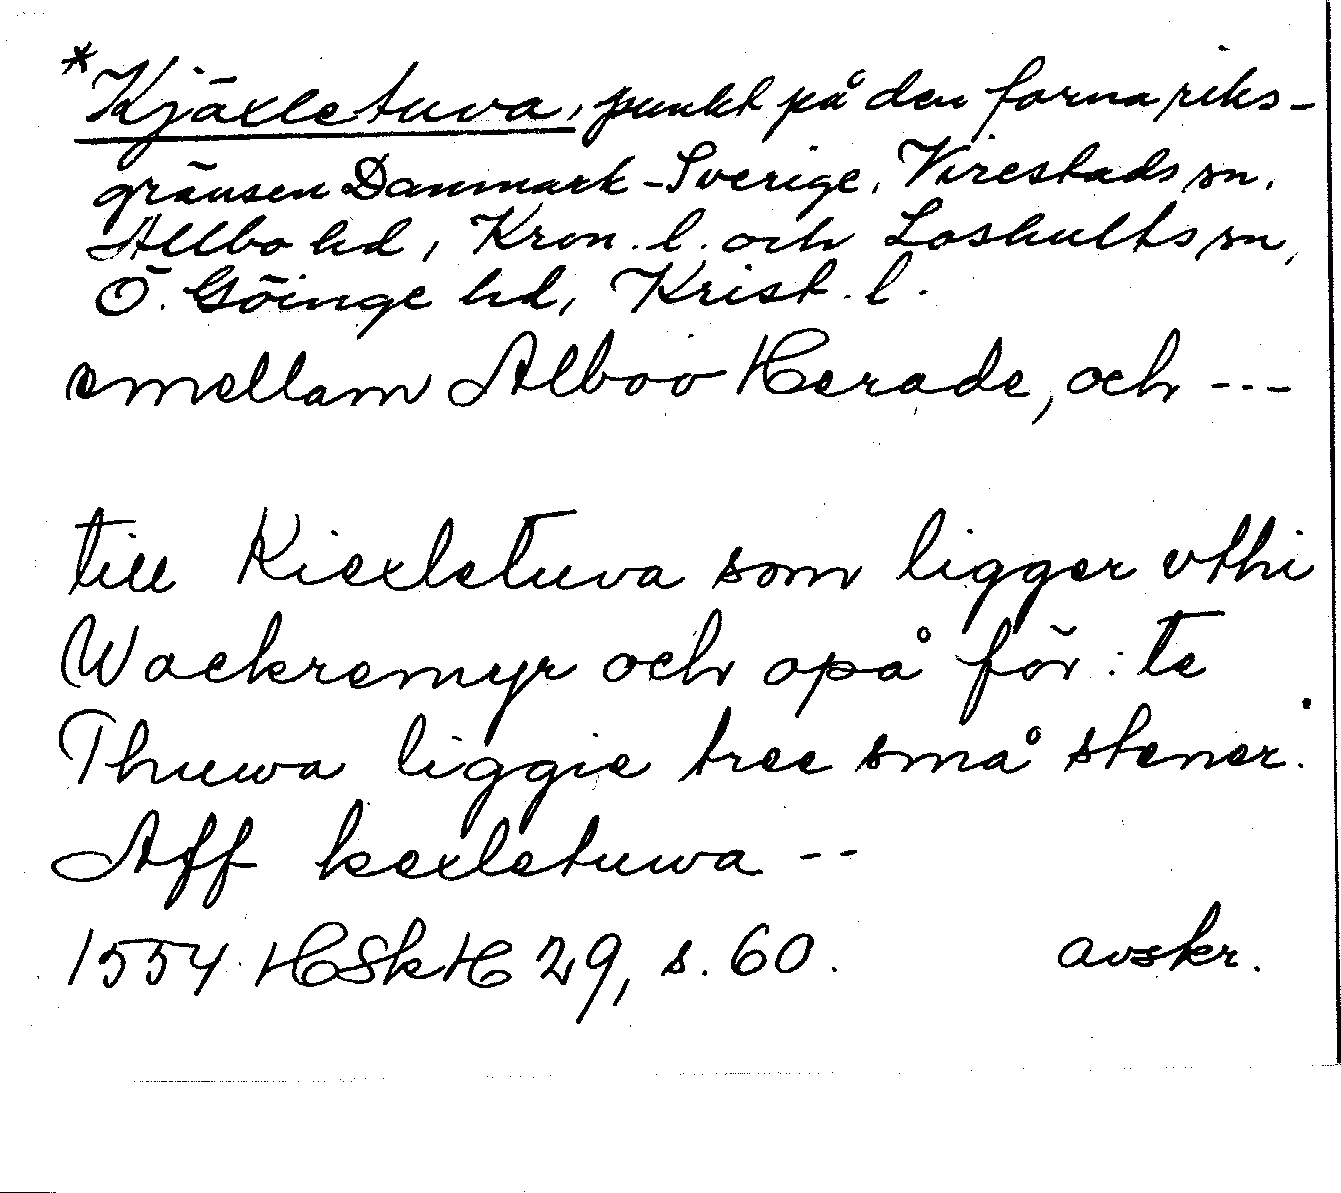 *Kjäxletuva, punkt på den forna riks-
gränsen Danmark-Sverige, Virestads sn,
Allbo hd, Kron. l. och Loshults sn,
Ö. Göinge hd, Krist. l.
emellam Alboo Herade, och ---
till Kiexletuva som ligger vthi
Wackremyr och opå för:te
Thuwa liggie tree små stener.
Aff kexletuwa --
1554 HSkH 29, s. 60. avskr.